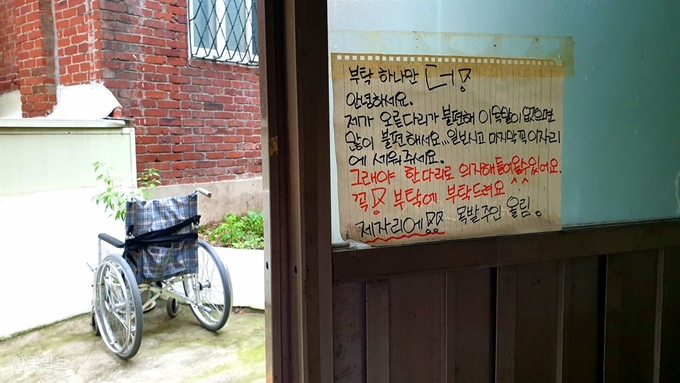 부탁 하나만 더!
안녕하세요.
제가 오른다리가 불편해 이 목발이 없으면
많이 불편해요... 일보시고 마지막 꼭 이자리
에 세워주세요.
그래야 한다리로 의지해 들어올수있어요.
꼭! 부탁에 부탁드려요^^
제자리에!! 목발주인 올림.
한국일보